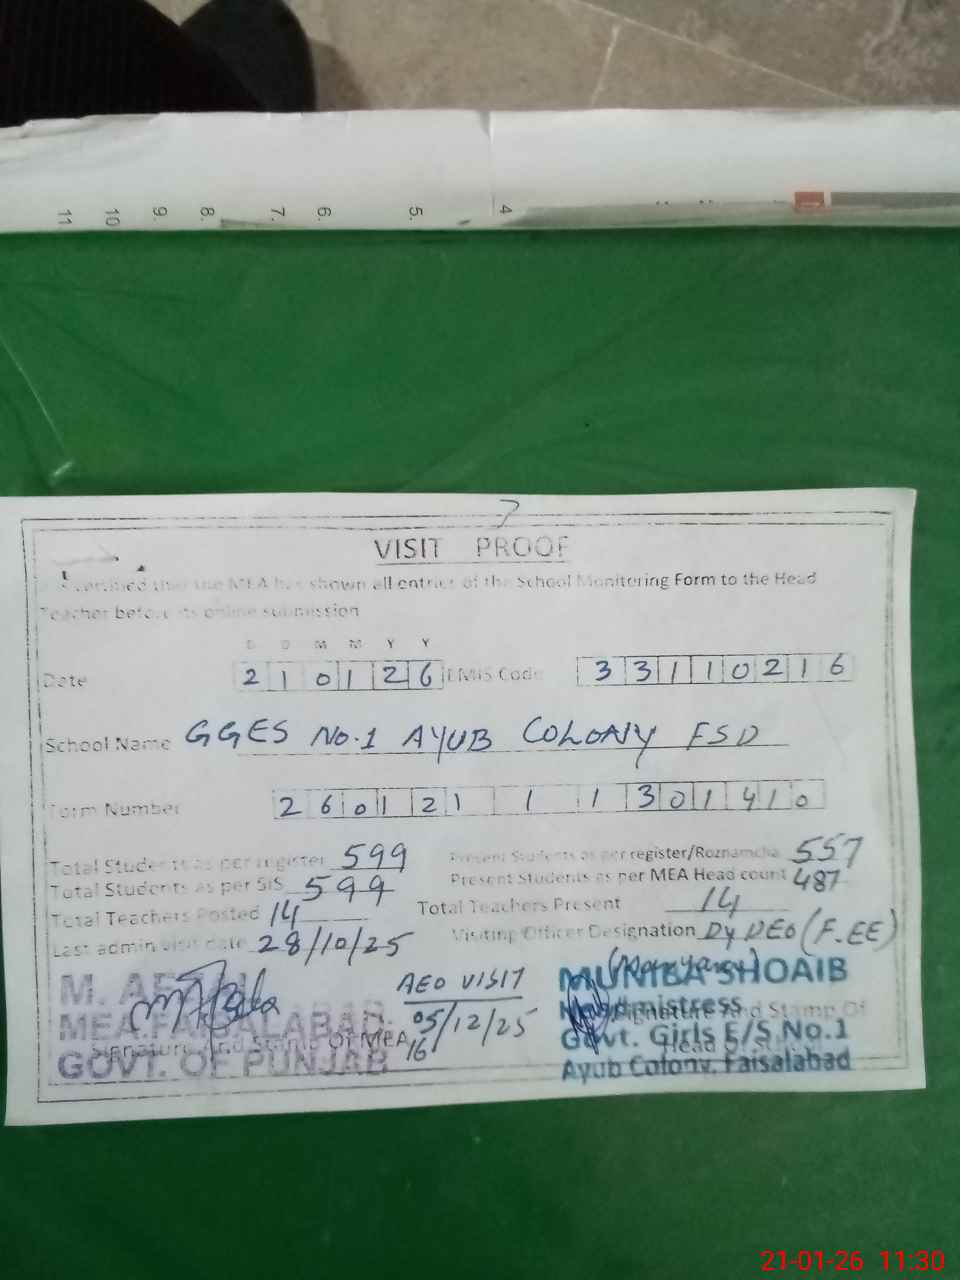 11 10 9. 8. 7. 6. 5. 4
VISIT PROOF
certified that the MEA has shown all entries of the School Monitoring Form to the Head
Teacher before its online submission
D D M M Y Y
Date 2 1 0 1 2 6 EMIS Code 3 3 1 1 0 2 1 6
School Name GGES No.1 AYUB COLONY FSD
Form Number 2 6 0 1 2 1 1 1 3 0 1 4 1 0
Total Students as per register 599 Present Students as per register/Roznamcha 557
Total Students as per SIS 599 Present Students as per MEA Head count 487
Total Teachers Posted 14 Total Teachers Present 14
Last admin visit date 28/10/25 Visiting Officer Designation Dy DEO (F.EE)
M. MUNIBA SHOAIB
AEO VISIT
MEA FAISALABAD Headmistress
05/12/25
Signature And Stamp Of MEA Signature And Stamp Of
16
GOVT. OF PUNJAB Govt. Girls E/S No.1
Head
Ayub Colony, Faisalabad
21-01-26 11:30